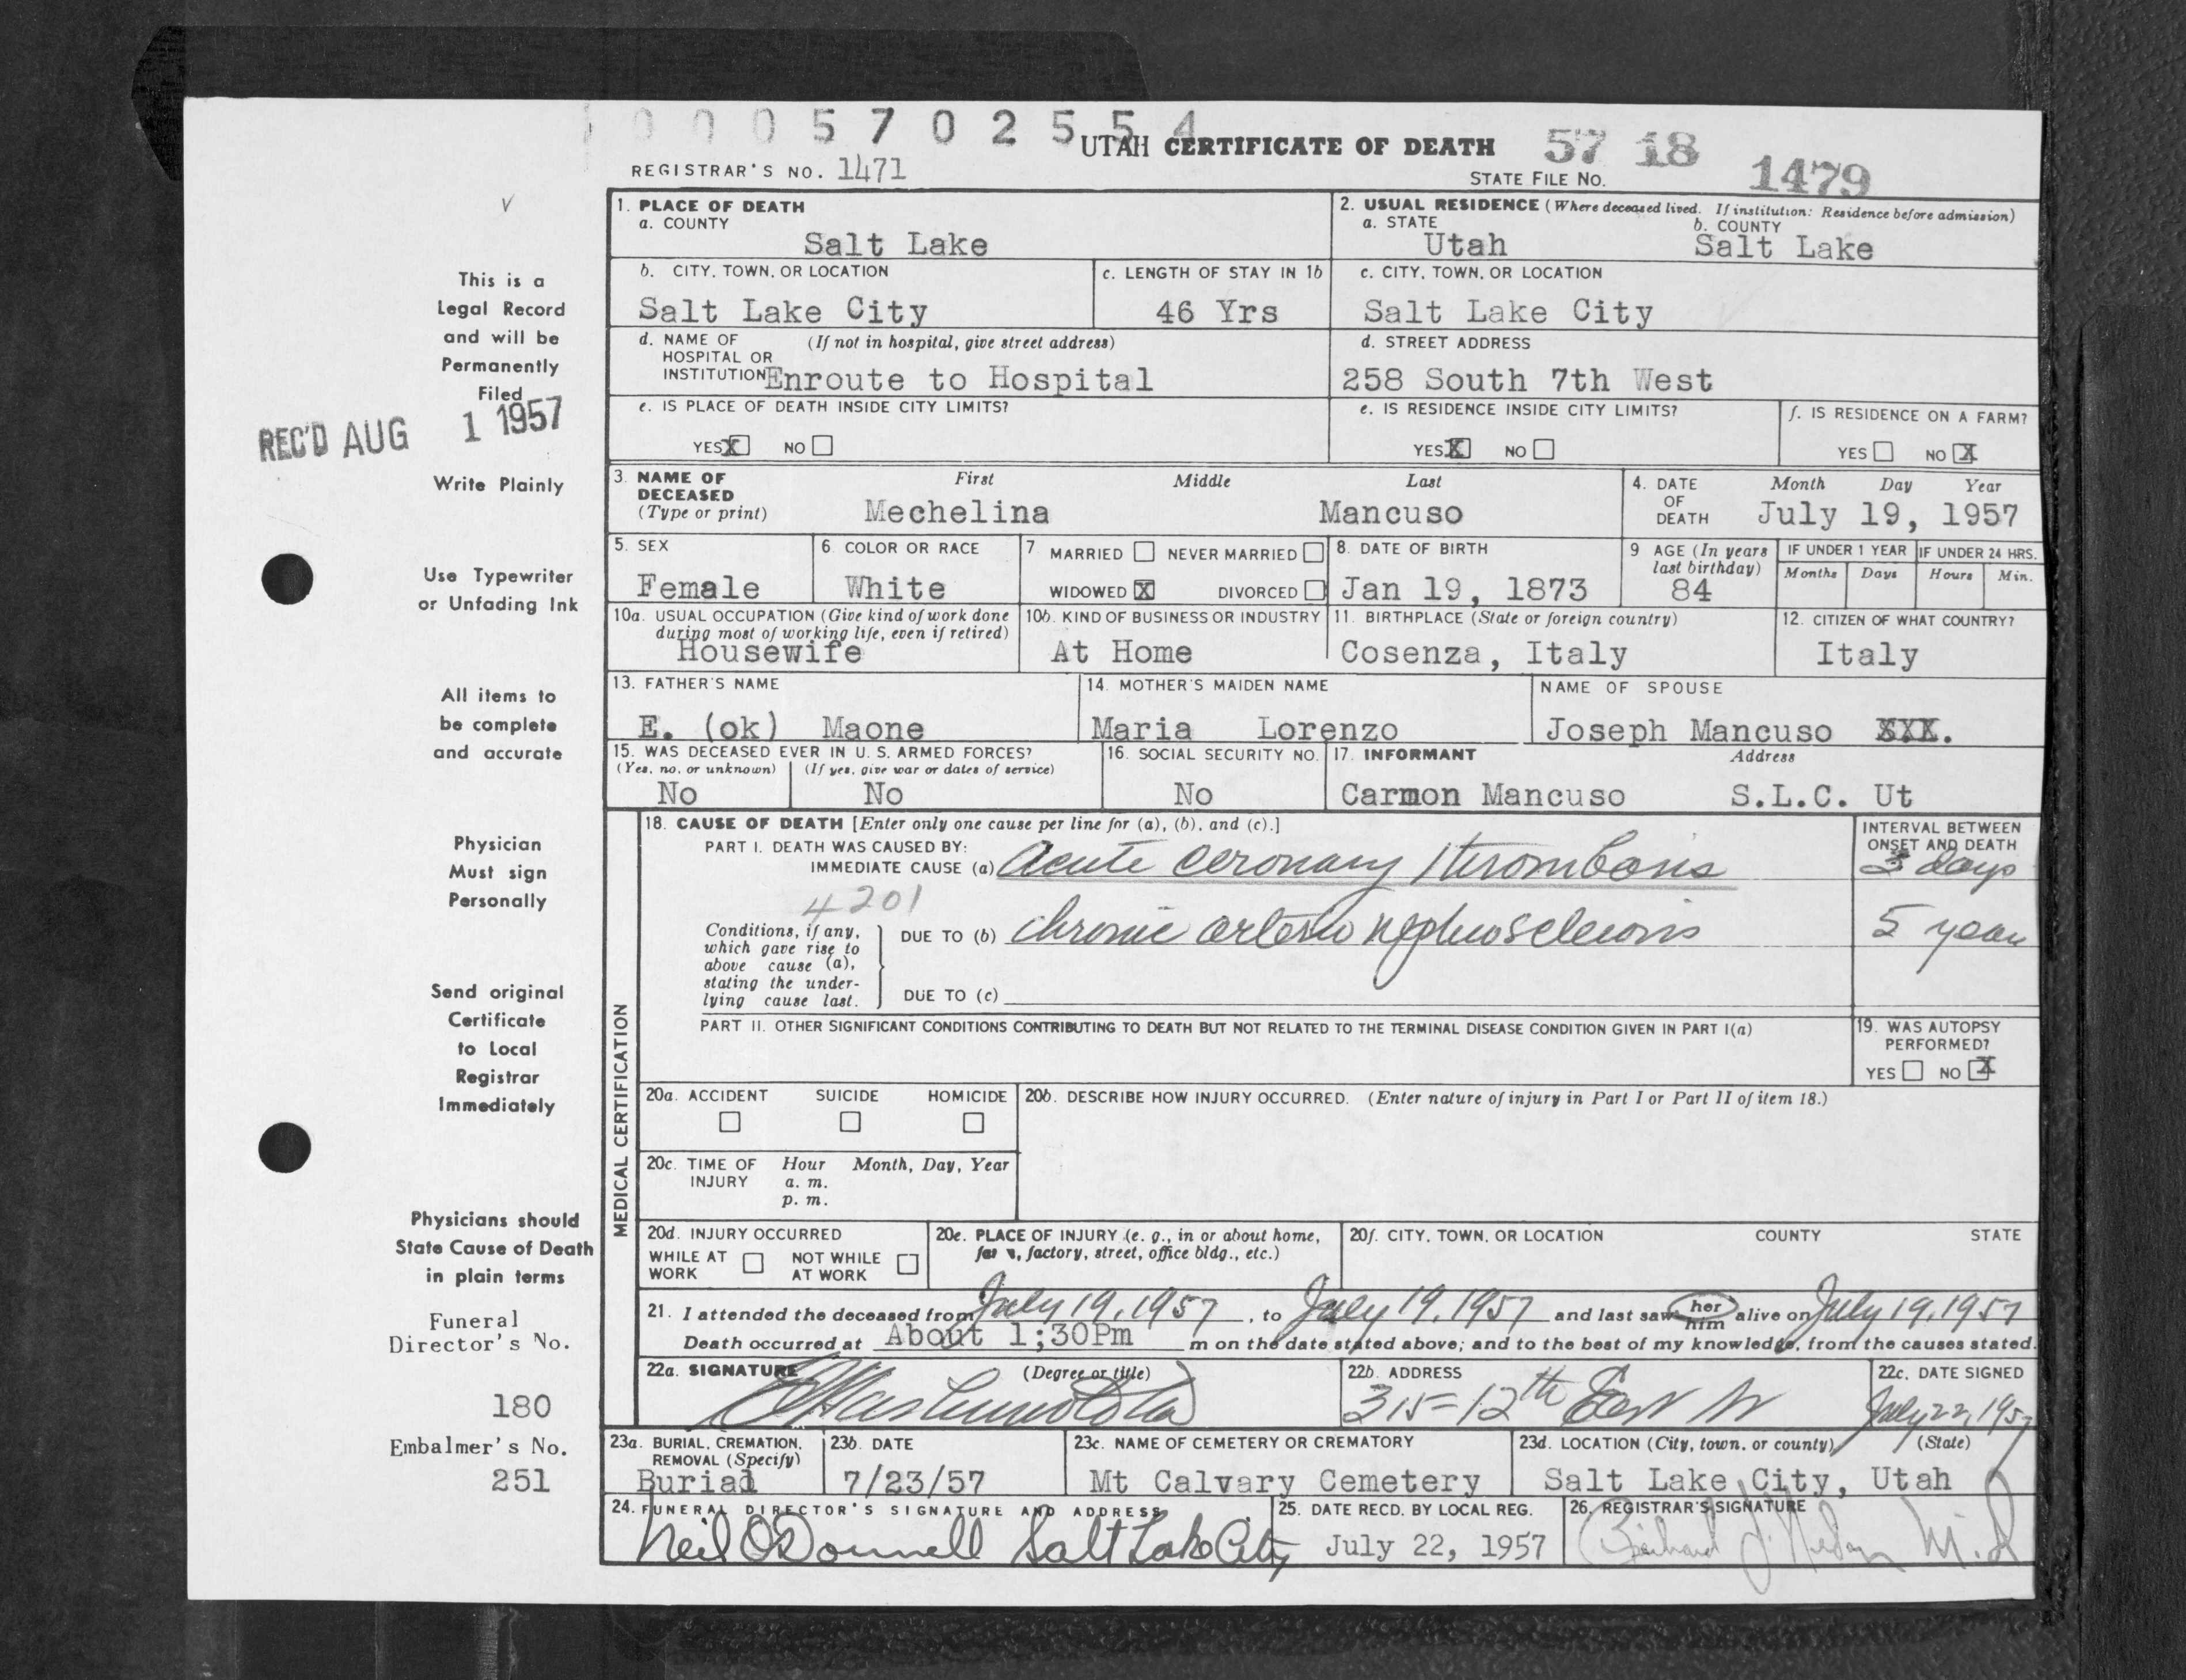 0005702554
UTAH CERTIFICATE OF DEATH 57 18
REGISTRAR'S NO. 1471 STATE FILE NO. 1479
1. PLACE OF DEATH
a. COUNTY
Salt Lake
2. USUAL RESIDENCE (Where deceased lived. If institution: Residence before admission)
a. STATE b. COUNTY
Utah Salt Lake
b. CITY, TOWN, OR LOCATION
Salt Lake City
c. LENGTH OF STAY IN 1b
46 Yrs
c. CITY, TOWN, OR LOCATION
Salt Lake City
d. NAME OF HOSPITAL OR INSTITUTION (If not in hospital, give street address)
Enroute to Hospital
d. STREET ADDRESS
258 South 7th West
e. IS PLACE OF DEATH INSIDE CITY LIMITS?
YES X NO
e. IS RESIDENCE INSIDE CITY LIMITS?
YES X NO
f. IS RESIDENCE ON A FARM?
YES NO X
3. NAME OF DECEASED (Type or print)
First Middle Last
Mechelina Mancuso
4. DATE OF DEATH Month Day Year
July 19, 1957
5. SEX
Female
6. COLOR OR RACE
White
7. MARRIED NEVER MARRIED
WIDOWED X DIVORCED
8. DATE OF BIRTH
Jan 19, 1873
9. AGE (In years last birthday)
84
IF UNDER 1 YEAR IF UNDER 24 HRS.
Months Days Hours Min.
10a. USUAL OCCUPATION (Give kind of work done during most of working life, even if retired)
Housewife
10b. KIND OF BUSINESS OR INDUSTRY
At Home
11. BIRTHPLACE (State or foreign country)
Cosenza, Italy
12. CITIZEN OF WHAT COUNTRY?
Italy
13. FATHER'S NAME
E. (ok) Maone
14. MOTHER'S MAIDEN NAME
Maria Lorenzo
NAME OF SPOUSE
Joseph Mancuso XXX.
15. WAS DECEASED EVER IN U. S. ARMED FORCES?
(Yes, no, or unknown) (If yes, give war or dates of service)
No No
16. SOCIAL SECURITY NO.
No
17. INFORMANT Address
Carmon Mancuso S.L.C. Ut
MEDICAL CERTIFICATION
18. CAUSE OF DEATH [Enter only one cause per line for (a), (b), and (c).]
PART I. DEATH WAS CAUSED BY:
IMMEDIATE CAUSE (a) Acute Coronary Thrombosis
INTERVAL BETWEEN ONSET AND DEATH
3 days
4201
Conditions, if any, which gave rise to above cause (a), stating the underlying cause last.
DUE TO (b) chronic arterio nephrosclerosis
5 years
DUE TO (c)
PART II. OTHER SIGNIFICANT CONDITIONS CONTRIBUTING TO DEATH BUT NOT RELATED TO THE TERMINAL DISEASE CONDITION GIVEN IN PART I(a)
19. WAS AUTOPSY PERFORMED?
YES NO X
20a. ACCIDENT SUICIDE HOMICIDE
20b. DESCRIBE HOW INJURY OCCURRED. (Enter nature of injury in Part I or Part II of item 18.)
20c. TIME OF INJURY Hour Month, Day, Year
a. m.
p. m.
20d. INJURY OCCURRED
WHILE AT WORK NOT WHILE AT WORK
20e. PLACE OF INJURY (e. g., in or about home, farm, factory, street, office bldg., etc.)
20f. CITY, TOWN, OR LOCATION COUNTY STATE
21. I attended the deceased from July 19, 1957, to July 19, 1957 and last saw her him alive on July 19, 1957
Death occurred at About 1;30Pm m on the date stated above; and to the best of my knowledge, from the causes stated.
22a. SIGNATURE (Degree or title)
22b. ADDRESS
315-12th East
22c. DATE SIGNED
July 22, 1957
23a. BURIAL, CREMATION, REMOVAL (Specify)
Burial
23b. DATE
7/23/57
23c. NAME OF CEMETERY OR CREMATORY
Mt Calvary Cemetery
23d. LOCATION (City, town, or county) (State)
Salt Lake City, Utah
24. FUNERAL DIRECTOR'S SIGNATURE AND ADDRESS
Neil O'Donnell Salt Lake City
25. DATE RECD. BY LOCAL REG.
July 22, 1957
26. REGISTRAR'S SIGNATURE
M.D
This is a
Legal Record
and will be
Permanently
Filed
REC'D AUG 1 1957
Write Plainly
Use Typewriter
or Unfading Ink
All items to
be complete
and accurate
Physician
Must sign
Personally
Send original
Certificate
to Local
Registrar
Immediately
Physicians should
State Cause of Death
in plain terms
Funeral
Director's No.
180
Embalmer's No.
251